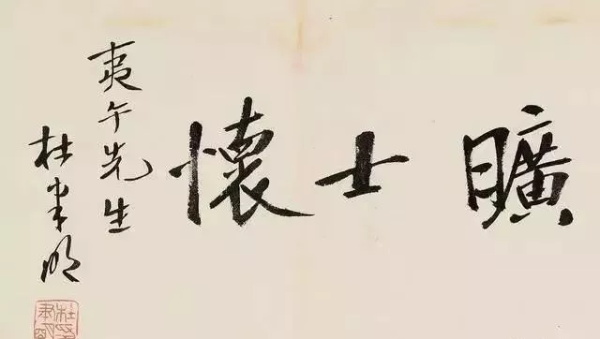 曠士懷
夷午先生
杜聿明